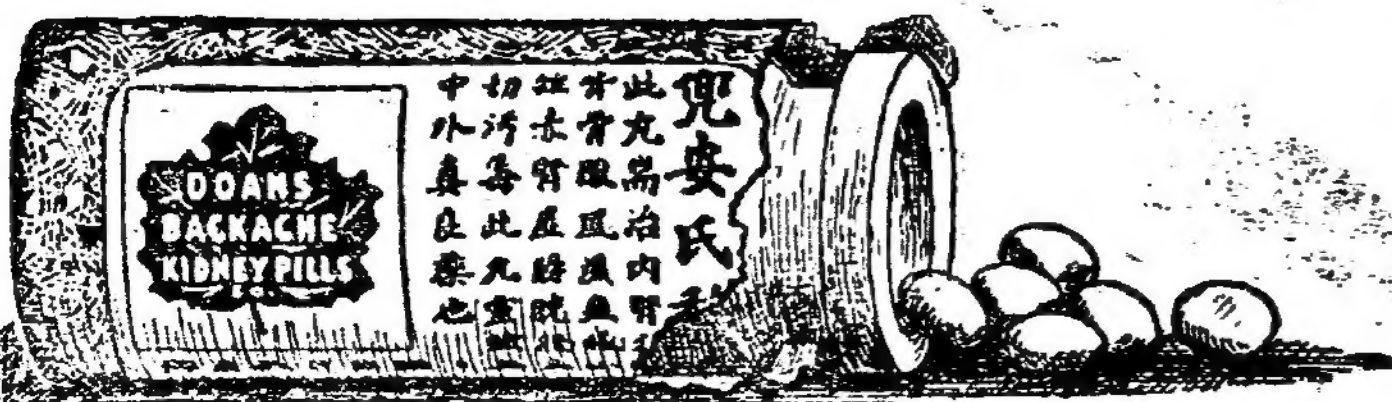 DOANS
BACKACHE
KIDNEY PILLS
兜安氏
此丸耑治內腎
背骨風濕血
症赤腎虛膀胱
切污毒此丸靈
中外真良藥也